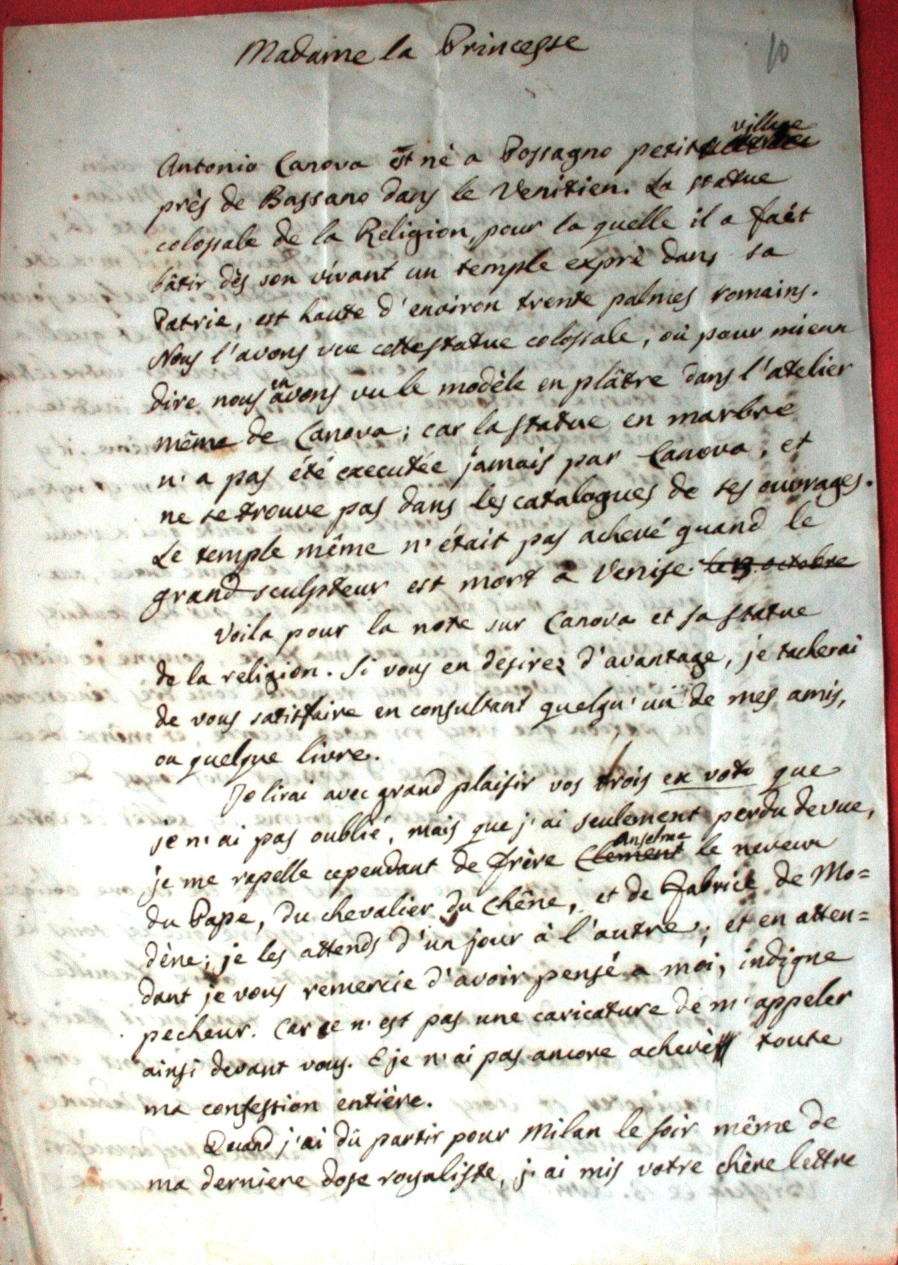 10
Madame la Princesse
village
Antonio Canova est né a Possagno petit
près de Bassano dans le Venitien. La statue
colossale de la Religion, pour la quelle il a faét
bâtir dès son vivant un temple exprè dans sa
Patrie, est haute d'environ trente palmes romains.
Nous l'avons vue cette statue colossale, où pour mieux
dire nous en avons vu le modèle en plâtre dans l'atelier
même de Canova; car la statue en marbre
n'a pas été executée jamais par Canova, et
ne se trouve pas dans les catalogues de ses ouvrages.
Le temple même n'était pas achevé quand le
grand sculpteur est mort a Venise. le 13 octobre
Voila pour la note sur Canova et sa statue
de la religion. Si vous en desirez d'avantage, je tacherai
de vous satisfaire en consultant quelqu'un de mes amis,
ou quelque livre.
Je lirai avec grand plaisir vos trois ex voto que
je n'ai pas oublié, mais que j'ai seulement perdu de vue,
je me rapelle cependant de frère Clement Anselme le neveux
du Pape, du chevalier du Chêne, et de Fabrice de Mo=
dène; je les attends d'un jour à l'autre; et en atten=
dant je vous remercie d'avoir pensé a moi, indigne
pecheur. Car ce n'est pas une caricature de m'appeler
ainsi devant vous. E je n'ai pas ancore achevè toute
ma confession entière.
Quand j'ai dû partir pour Milan le soir même de
ma derniere dose royaliste, j'ai mis votre chère lettre